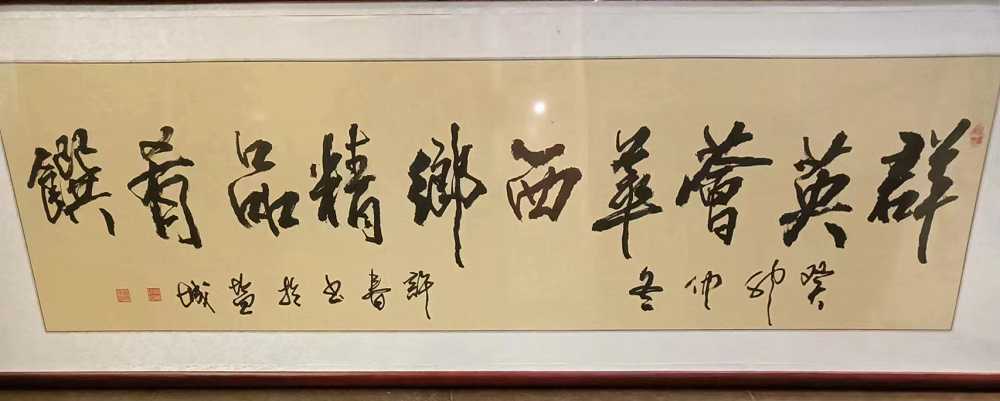 群英薈華西鄉精品肴饌
癸卯仲冬
許春書於盐城